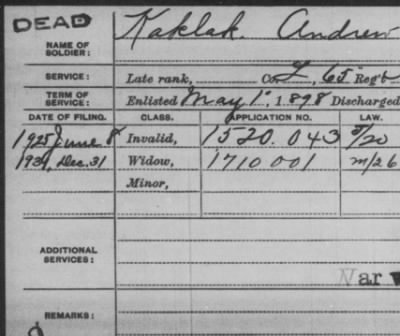 DEAD
NAME OF SOLDIER: Kaklak. Andrew
SERVICE: Late rank, Co. L, 65 Reg't
TERM OF SERVICE: Enlisted May 1", 1898 Discharged
DATE OF FILING. CLASS. APPLICATION NO. LAW.
1925 June 8 Invalid, 1520.043 /20
Dec. 31 Widow, 1710 001 m/26
Minor,
ADDITIONAL SERVICES:
War
REMARKS: